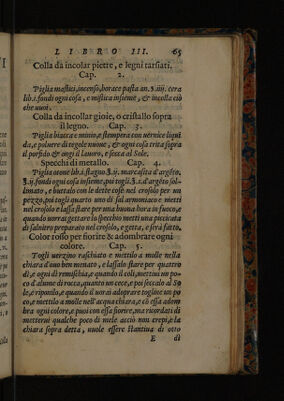 LIBRO III. 65
Colla da incolar pietre, e legni tarsiati.
Cap. 2.
Piglia mastici, incenso, borace pasta an. ʒ.iiij. cera
lib.s. fondi ogni cosa, e mistica insieme, & incolla ciò
che vuoi.
Colla da incollar gioie, o cristallo sopra
il legno. Cap. 3.
Piglia biacca e minio, e stempera con vernice liqui
da, e poluere di tegole nuoue, & ogni cosa trita sopra
il porfido & ongi il lauoro, e secca al Sole.
Specchi di metallo. Cap. 4.
Piglia otone lib.i. stagno ʒ.ij. marcasita d'argēto.
ʒ.ij. fondi ogni cosa insieme, poi togli ʒ.i. d'argēto sol-
limato, e buttalo con le dette cose nel crosolo per un
pezzo, poi togli quarto uno di sal armoniaco e metti
nel crosolo e lassa stare per una buona hora in fuoco, e
quando uorrai gettare lo specchio metti una pizzicata
di salnitro preparato nel crosolo, e getta, e sera fatto.
Color rosso per fiorire & adombrare ogni
colore. Cap. 5.
Togli uerzino raschiato e mettilo a molle nella
chiara d'uuo ben menato, e lassalo stare per quattro
dì, e ogni dì remischia, e quando il coli, mettiui un po-
co d'alume di rocca, quanto un cece, e poi seccalo al So
le, e riponilo, e quando il uorai adoprare togline un po
co, e mettilo a molle nell'acqua chiara, e cō essa adom
bra ogni colore, e puoi con essa fiorire, ma ricordati di
metterui qualche poco di mele acciò non crepi, e la
chiara sopra detta, uuole essere stantiua di otto
E dì